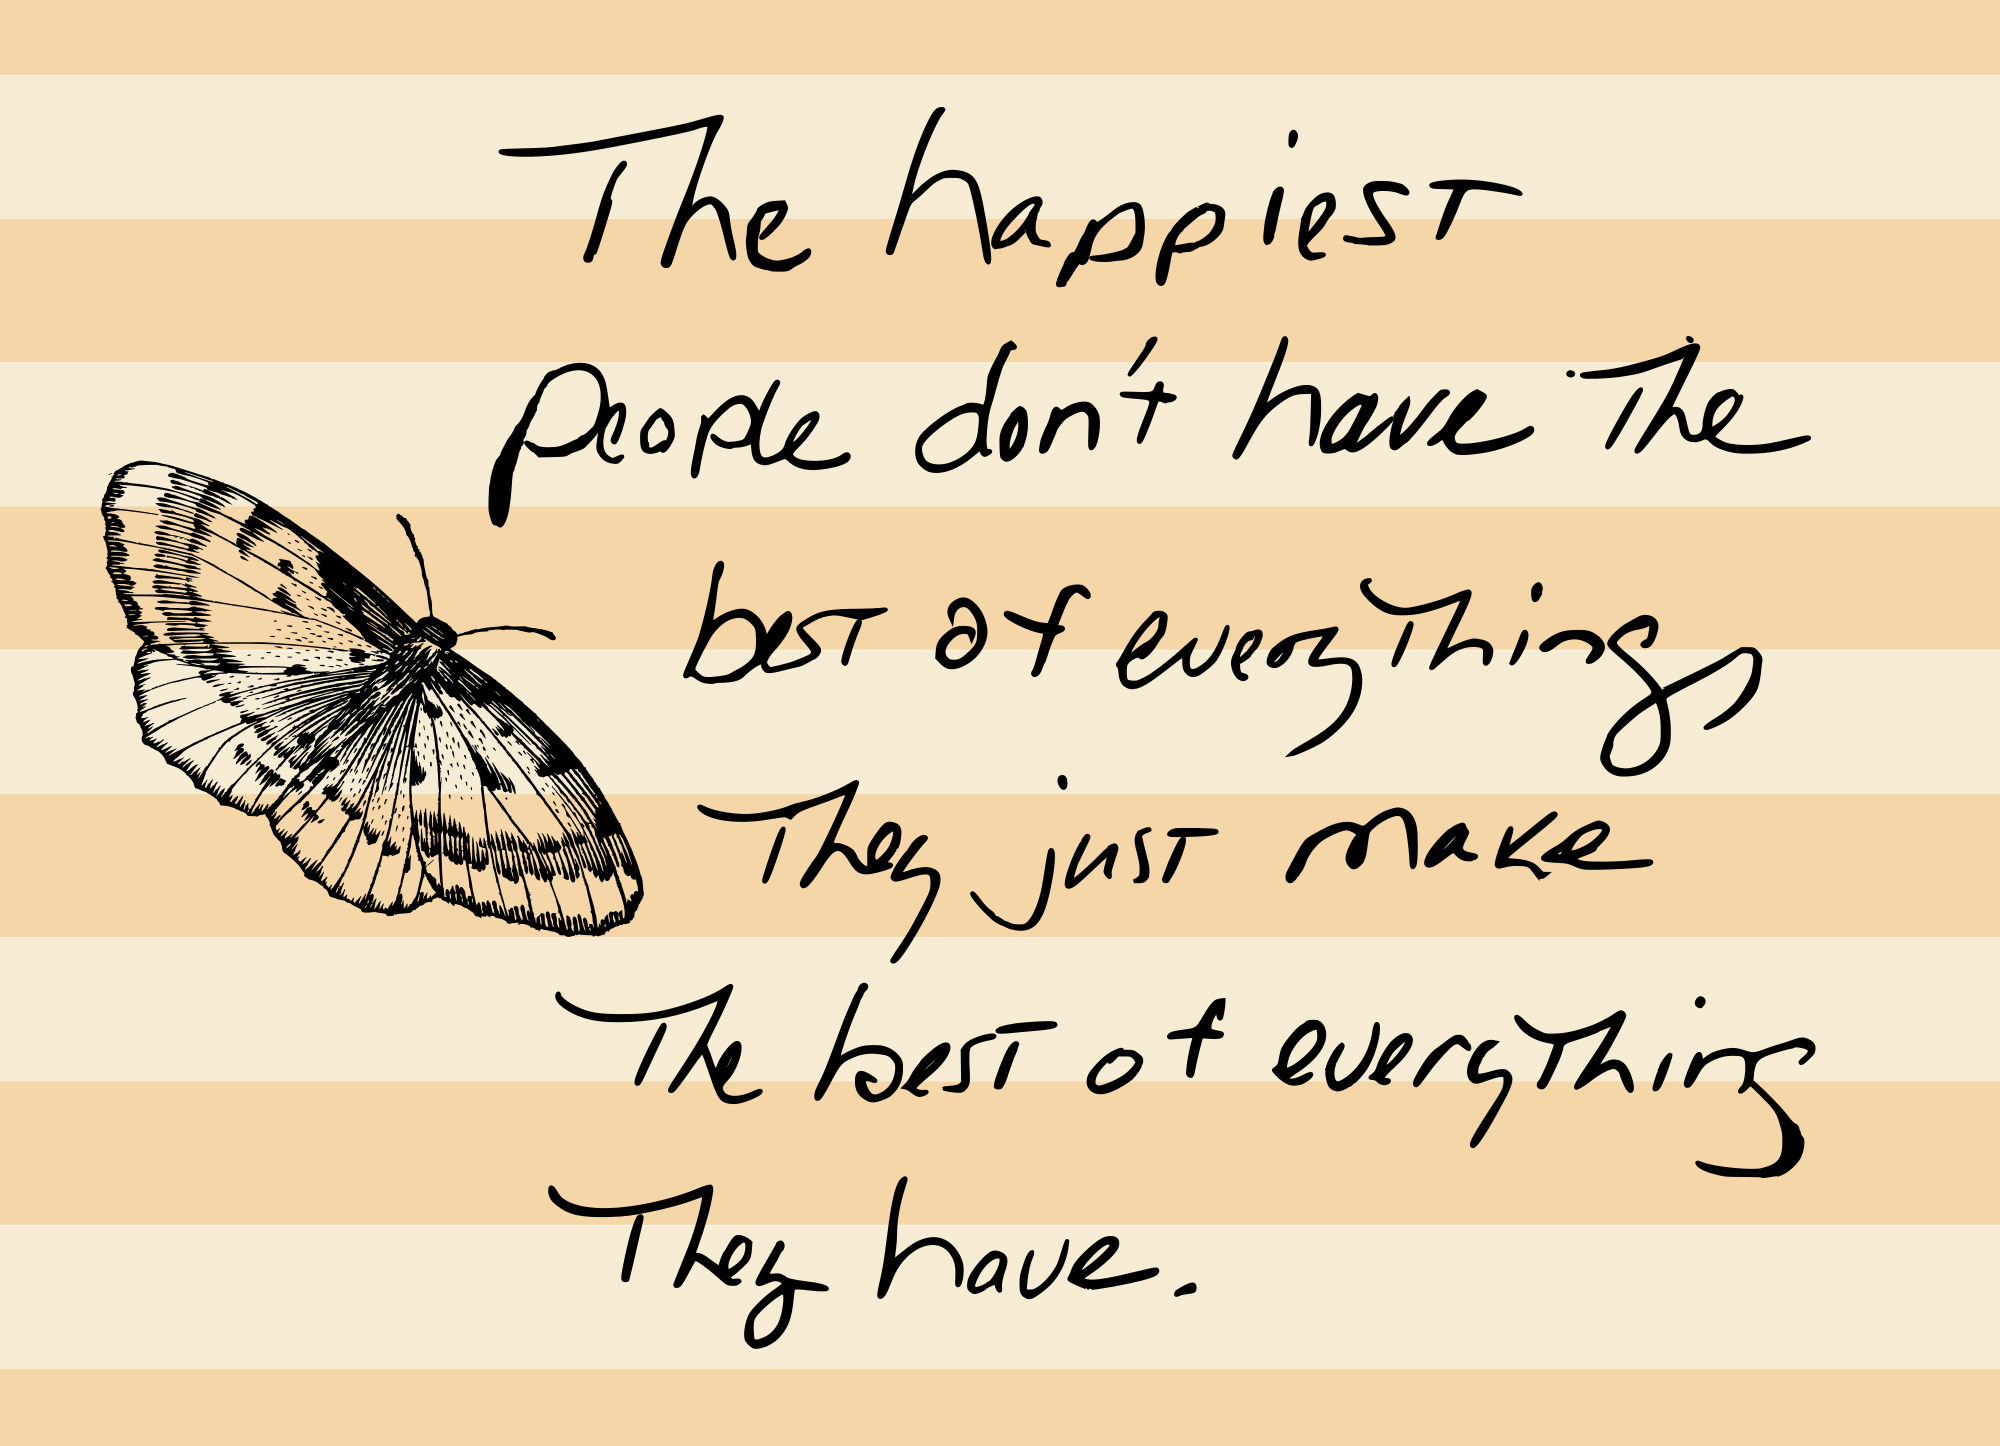 The happiest
people don't have The
best of everything,
They just make
The best of everything
They have.